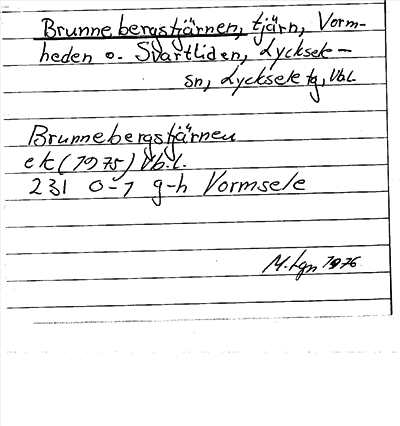 Brunnebergstjärnen, tjärn, Vorm-
heden o. Svartliden, Lycksele -
sn, Lycksele tg, Vbl.
Brunnebergstjärnen
ek (1975) Vb.l.
231 0-1 g-h Vormsele
M. Lgn 1976